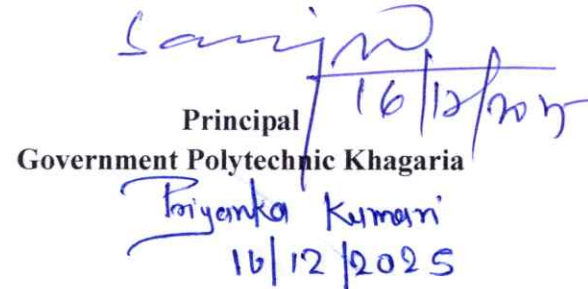 16/12/2025
Principal
Government Polytechnic Khagaria
Priyanka Kumari
16/12/2025